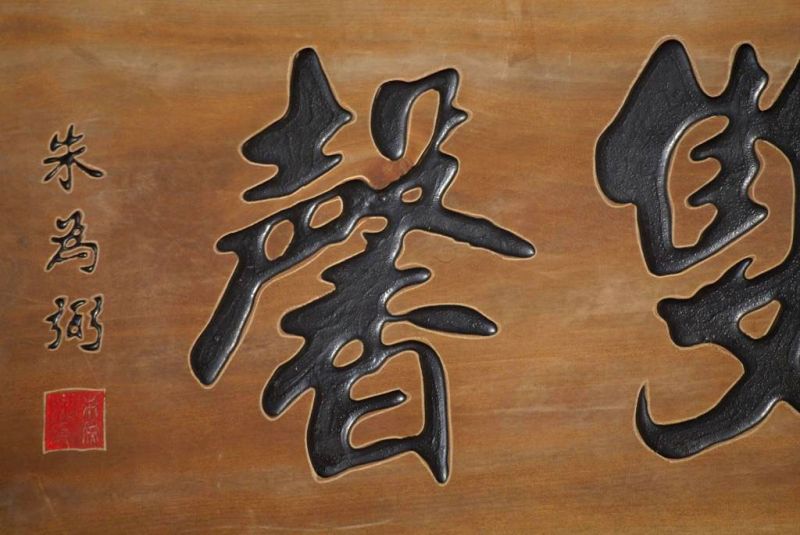 雙馨
朱為弼